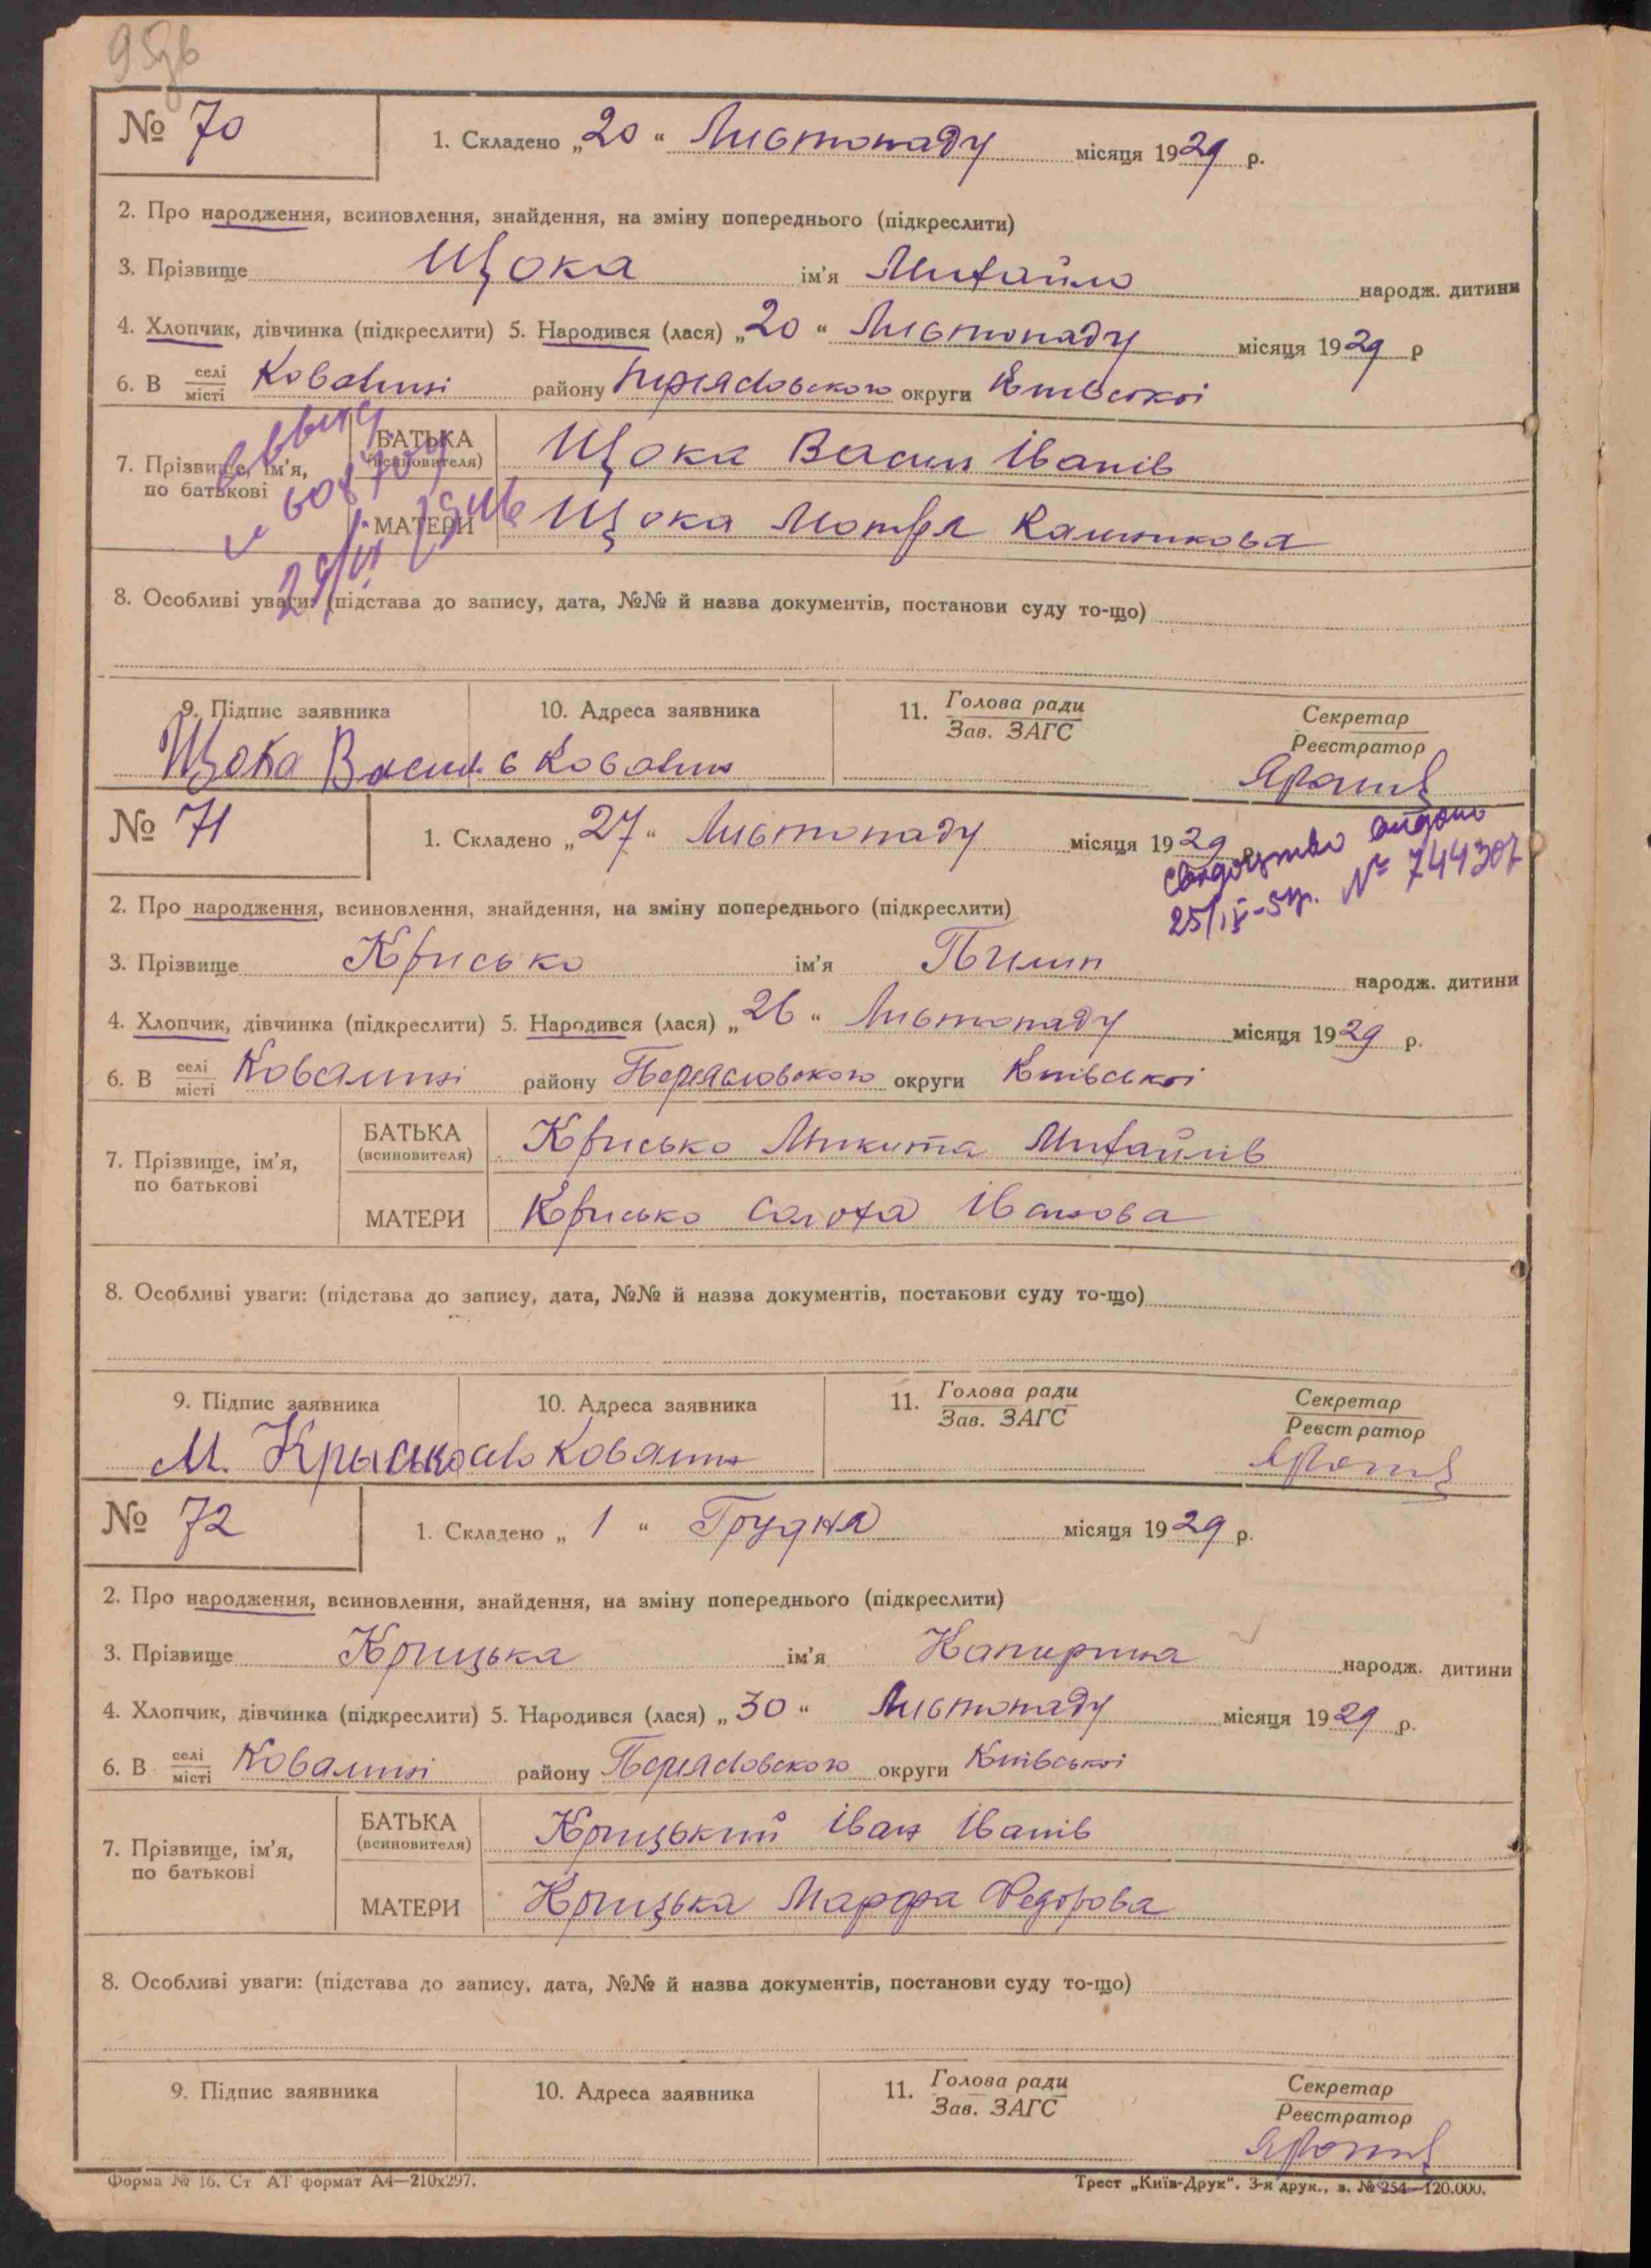 95зв
№ 70
1. Складено „20“ Листопаду місяця 1929 р.
2. Про народження, всиновлення, знайдення, на зміну попереднього (підкреслити)
3. Прізвище Щока ім'я Михайло народж. дитини
4. Хлопчик, дівчинка (підкреслити) 5. Народився (лася) „20“ Листопаду місяця 1929 р
6. В селі/місті Ковалині району Переяславського округи Київської
7. Прізвище, ім'я, по батькові
БАТЬКА (всиновителя) Щока Васил Іванів
МАТЕРИ Щока Мотря Калинкова
8. Особливі уваги: (підстава до запису, дата, №№ й назва документів, постанови суду то-що)
9. Підпис заявника 10. Адреса заявника 11. Голова ради/Зав. ЗАГС Секретар/Реєстратор
Щока Васил с Ковалин
№ 71
1. Складено „27“ Листопаду місяця 1929 р.
свідоцтво видано
25/IV-5 р. № 744307
2. Про народження, всиновлення, знайдення, на зміну попереднього (підкреслити)
3. Прізвище Крисько ім'я Пилип народж. дитини
4. Хлопчик, дівчинка (підкреслити) 5. Народився (лася) „26“ Листопаду місяця 1929 р.
6. В селі/місті Ковалині району Переясловского округи Київської
7. Прізвище, ім'я, по батькові
БАТЬКА (всиновителя) Крисько Микита Михайлів
МАТЕРИ Крисько Солоха Іванова
8. Особливі уваги: (підстава до запису, дата, №№ й назва документів, постанови суду то-що)
9. Підпис заявника 10. Адреса заявника 11. Голова ради/Зав. ЗАГС Секретар/Реєстратор
М. Крысько Ковалин
№ 72
1. Складено „1“ Грудня місяця 1929 р.
2. Про народження, всиновлення, знайдення, на зміну попереднього (підкреслити)
3. Прізвище Крицька ім'я Катирина народж. дитини
4. Хлопчик, дівчинка (підкреслити) 5. Народився (лася) „30“ Листопаду місяця 1929 р.
6. В селі/місті Ковалині району Переясловского округи Київської
7. Прізвище, ім'я, по батькові
БАТЬКА (всиновителя) Крицький Іван Іванів
МАТЕРИ Крицька Марфа Федорова
8. Особливі уваги: (підстава до запису, дата, №№ й назва документів, постанови суду то-що)
9. Підпис заявника 10. Адреса заявника 11. Голова ради/Зав. ЗАГС Секретар/Реєстратор
Форма № 16. Ст АТ формат А4—210х297. Трест „Київ-Друк“. 3-я друк., з. № 254—120.000.